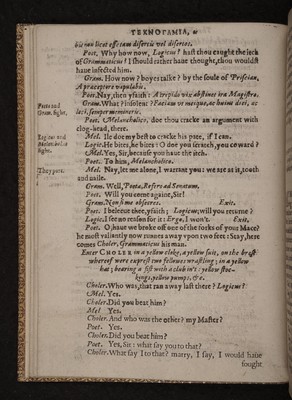 ΤΕΧΝΟΓΑΜΙΑ,
hic non licet esse tam disertis vel disertos.
Poet. Why how now, Logicus? hast thou caught the itch
of Grammaticus? I should rather haue thought, thou wouldst
haue infected him.
Gram. How now? boyes talke? by the soule of Priscian,
A præceptore vapulabis.
Poet. Nay, then yfaith: A trepido vix abstinet ira Magistro.
Gram. What? insolent? Faciam ut meique, ac huius diei, ac
loci, semper memineris.
Poet. Melancholico, doe thou cracke an argument with
clog-head, there.
Mel. Ile doe my best to cracke his pate, if I can.
Logic. He bites, he bites: O doe you scratch, you coward?
Mel. Yes, Sir, because you haue the itch.
Poet. To him, Melancholico.
Mel. Nay, let me alone, I warrant you: we are as is, tooth
and naile.
Gram. Well, Poeta, Refero ad Senatum.
Poet. Will you come againe, Sir?
Gram. Non sum obscæres. Exit.
Poet. I beleeue thee, yfaith; Logicus, will you resume?
Logic. I see no reason for it: Ergo, I won't. Exit.
Poet. O, haue we broke off one of the forks of your Mace?
he most valiantly now runnes away vpon two feet: Stay, here
comes Choler, Grammaticus his man.
Enter CHOLER in a yellow cloke, a yellow suit, on the brest
whereof were exprest two fellowes wrastling; in a yellow
hat; bearing a fist with a club in't: yellow stoc-
kings, yellow pumps, &c.
Choler. Who was, that ran away last there? Logicus?
Mel. Yes.
Choler. Did you beat him?
Mel Yes.
Choler. And who was the other? my Master?
Poet. Yes.
Choler. Did you beat him?
Poet. Yes, Sir: what say you to that?
Choler. What say I to that? marry, I say, I would haue
fought
Poeta and
Gram. fight.
Logicus and
Melancholico
fight.
They part.